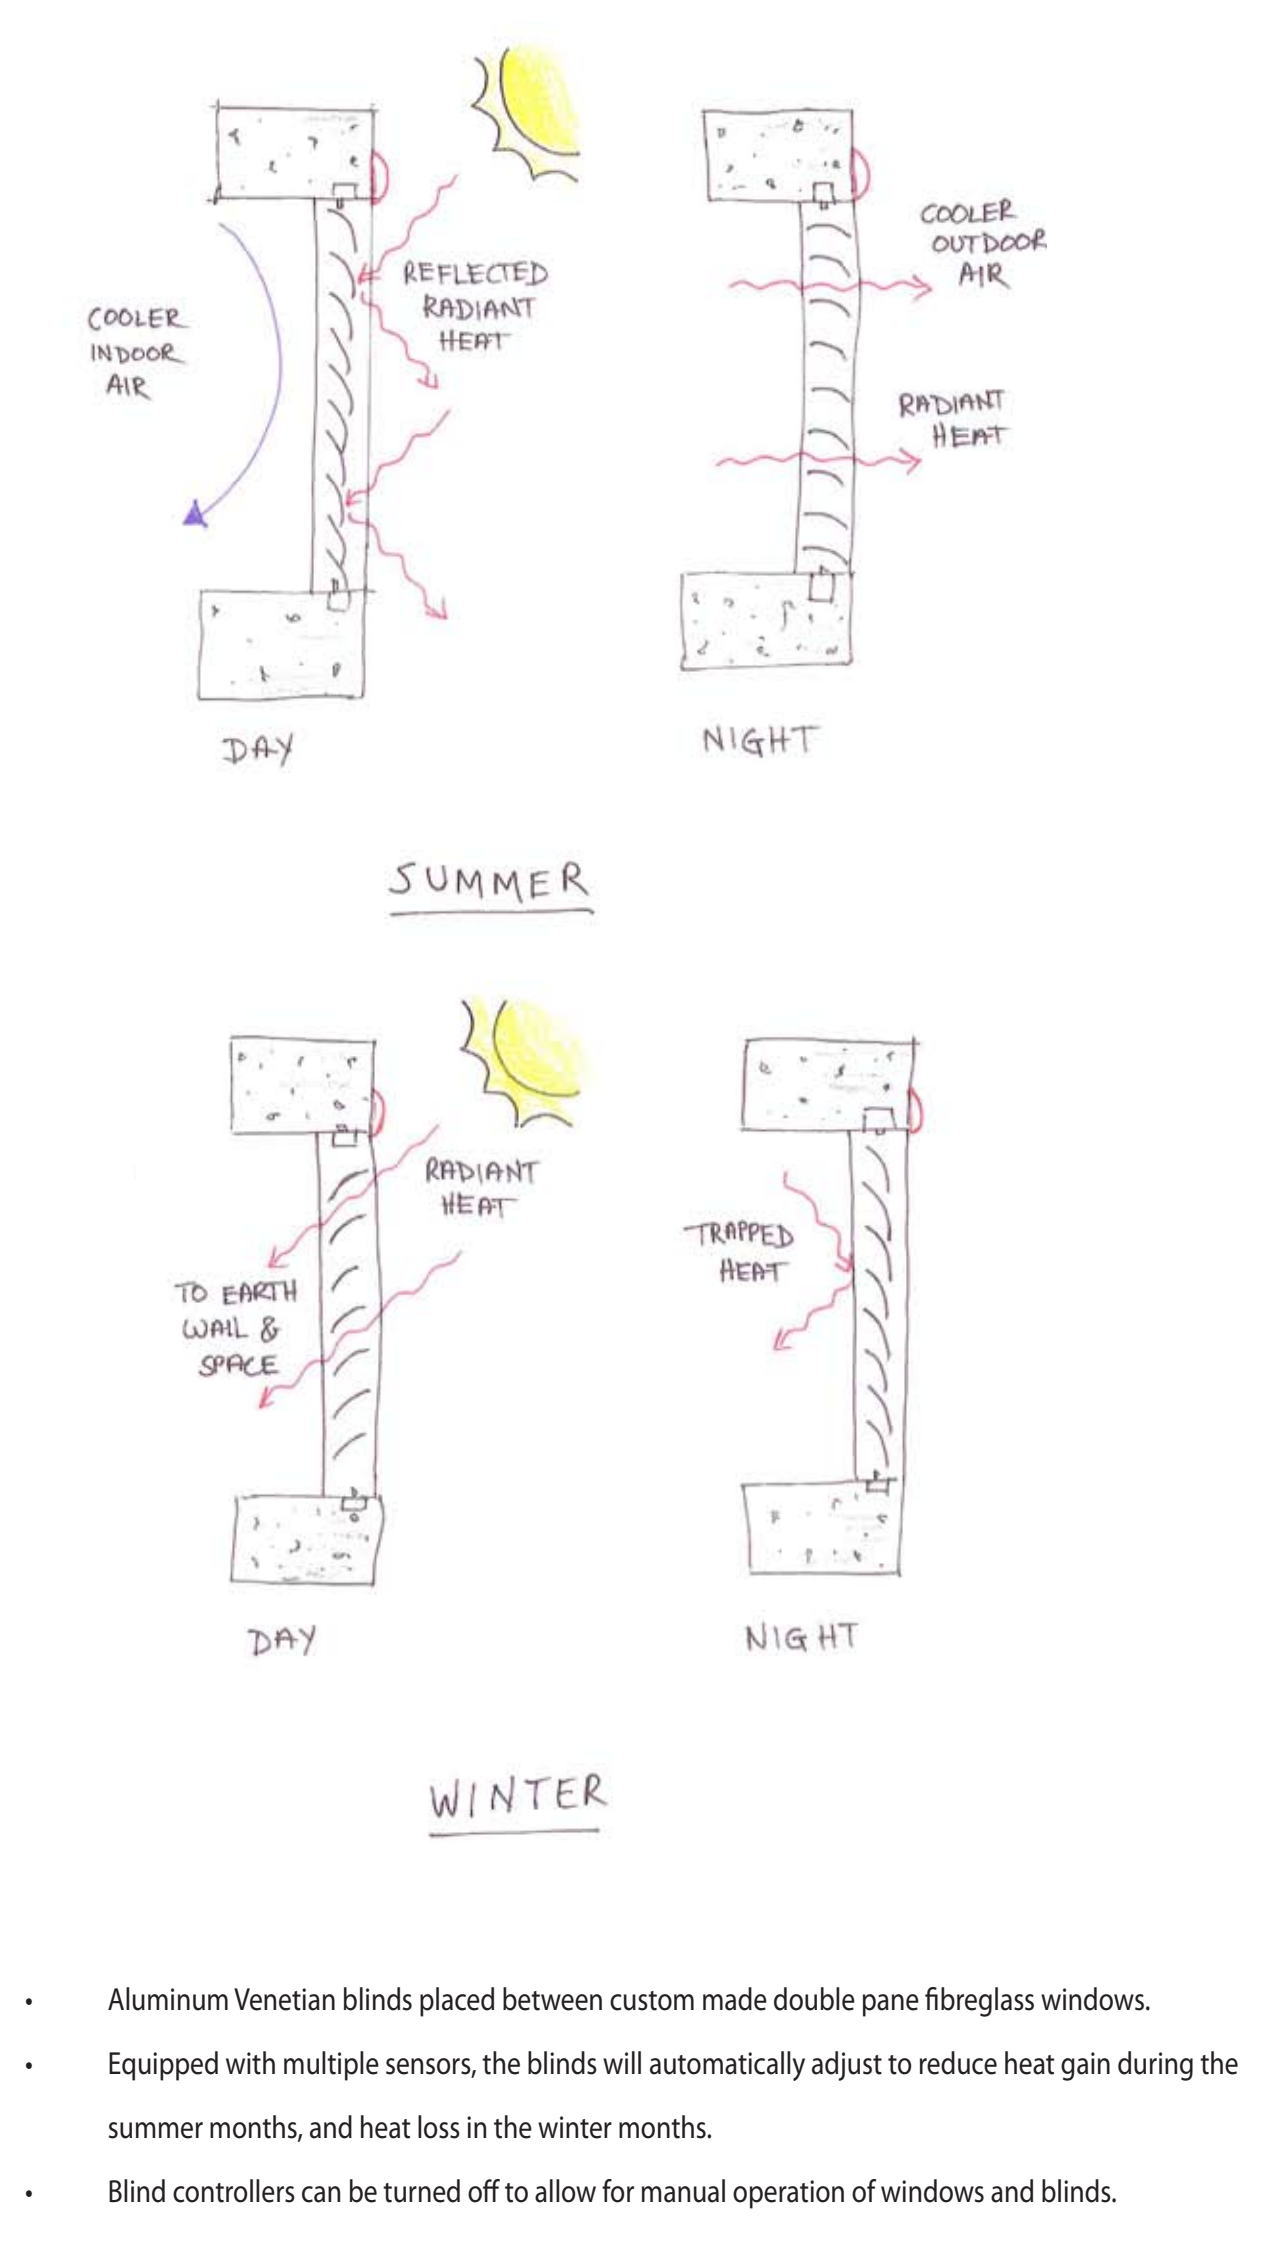 COOLER
INDOOR
AIR
REFLECTED
RADIANT
HEAT
DAY
COOLER
OUTDOOR
AIR
RADIANT
HEAT
NIGHT
SUMMER
RADIANT
HEAT
TO EARTH
WALL &
SPACE
DAY
TRAPPED
HEAT
NIGHT
WINTER
• Aluminum Venetian blinds placed between custom made double pane fibreglass windows.
• Equipped with multiple sensors, the blinds will automatically adjust to reduce heat gain during the
summer months, and heat loss in the winter months.
• Blind controllers can be turned off to allow for manual operation of windows and blinds.